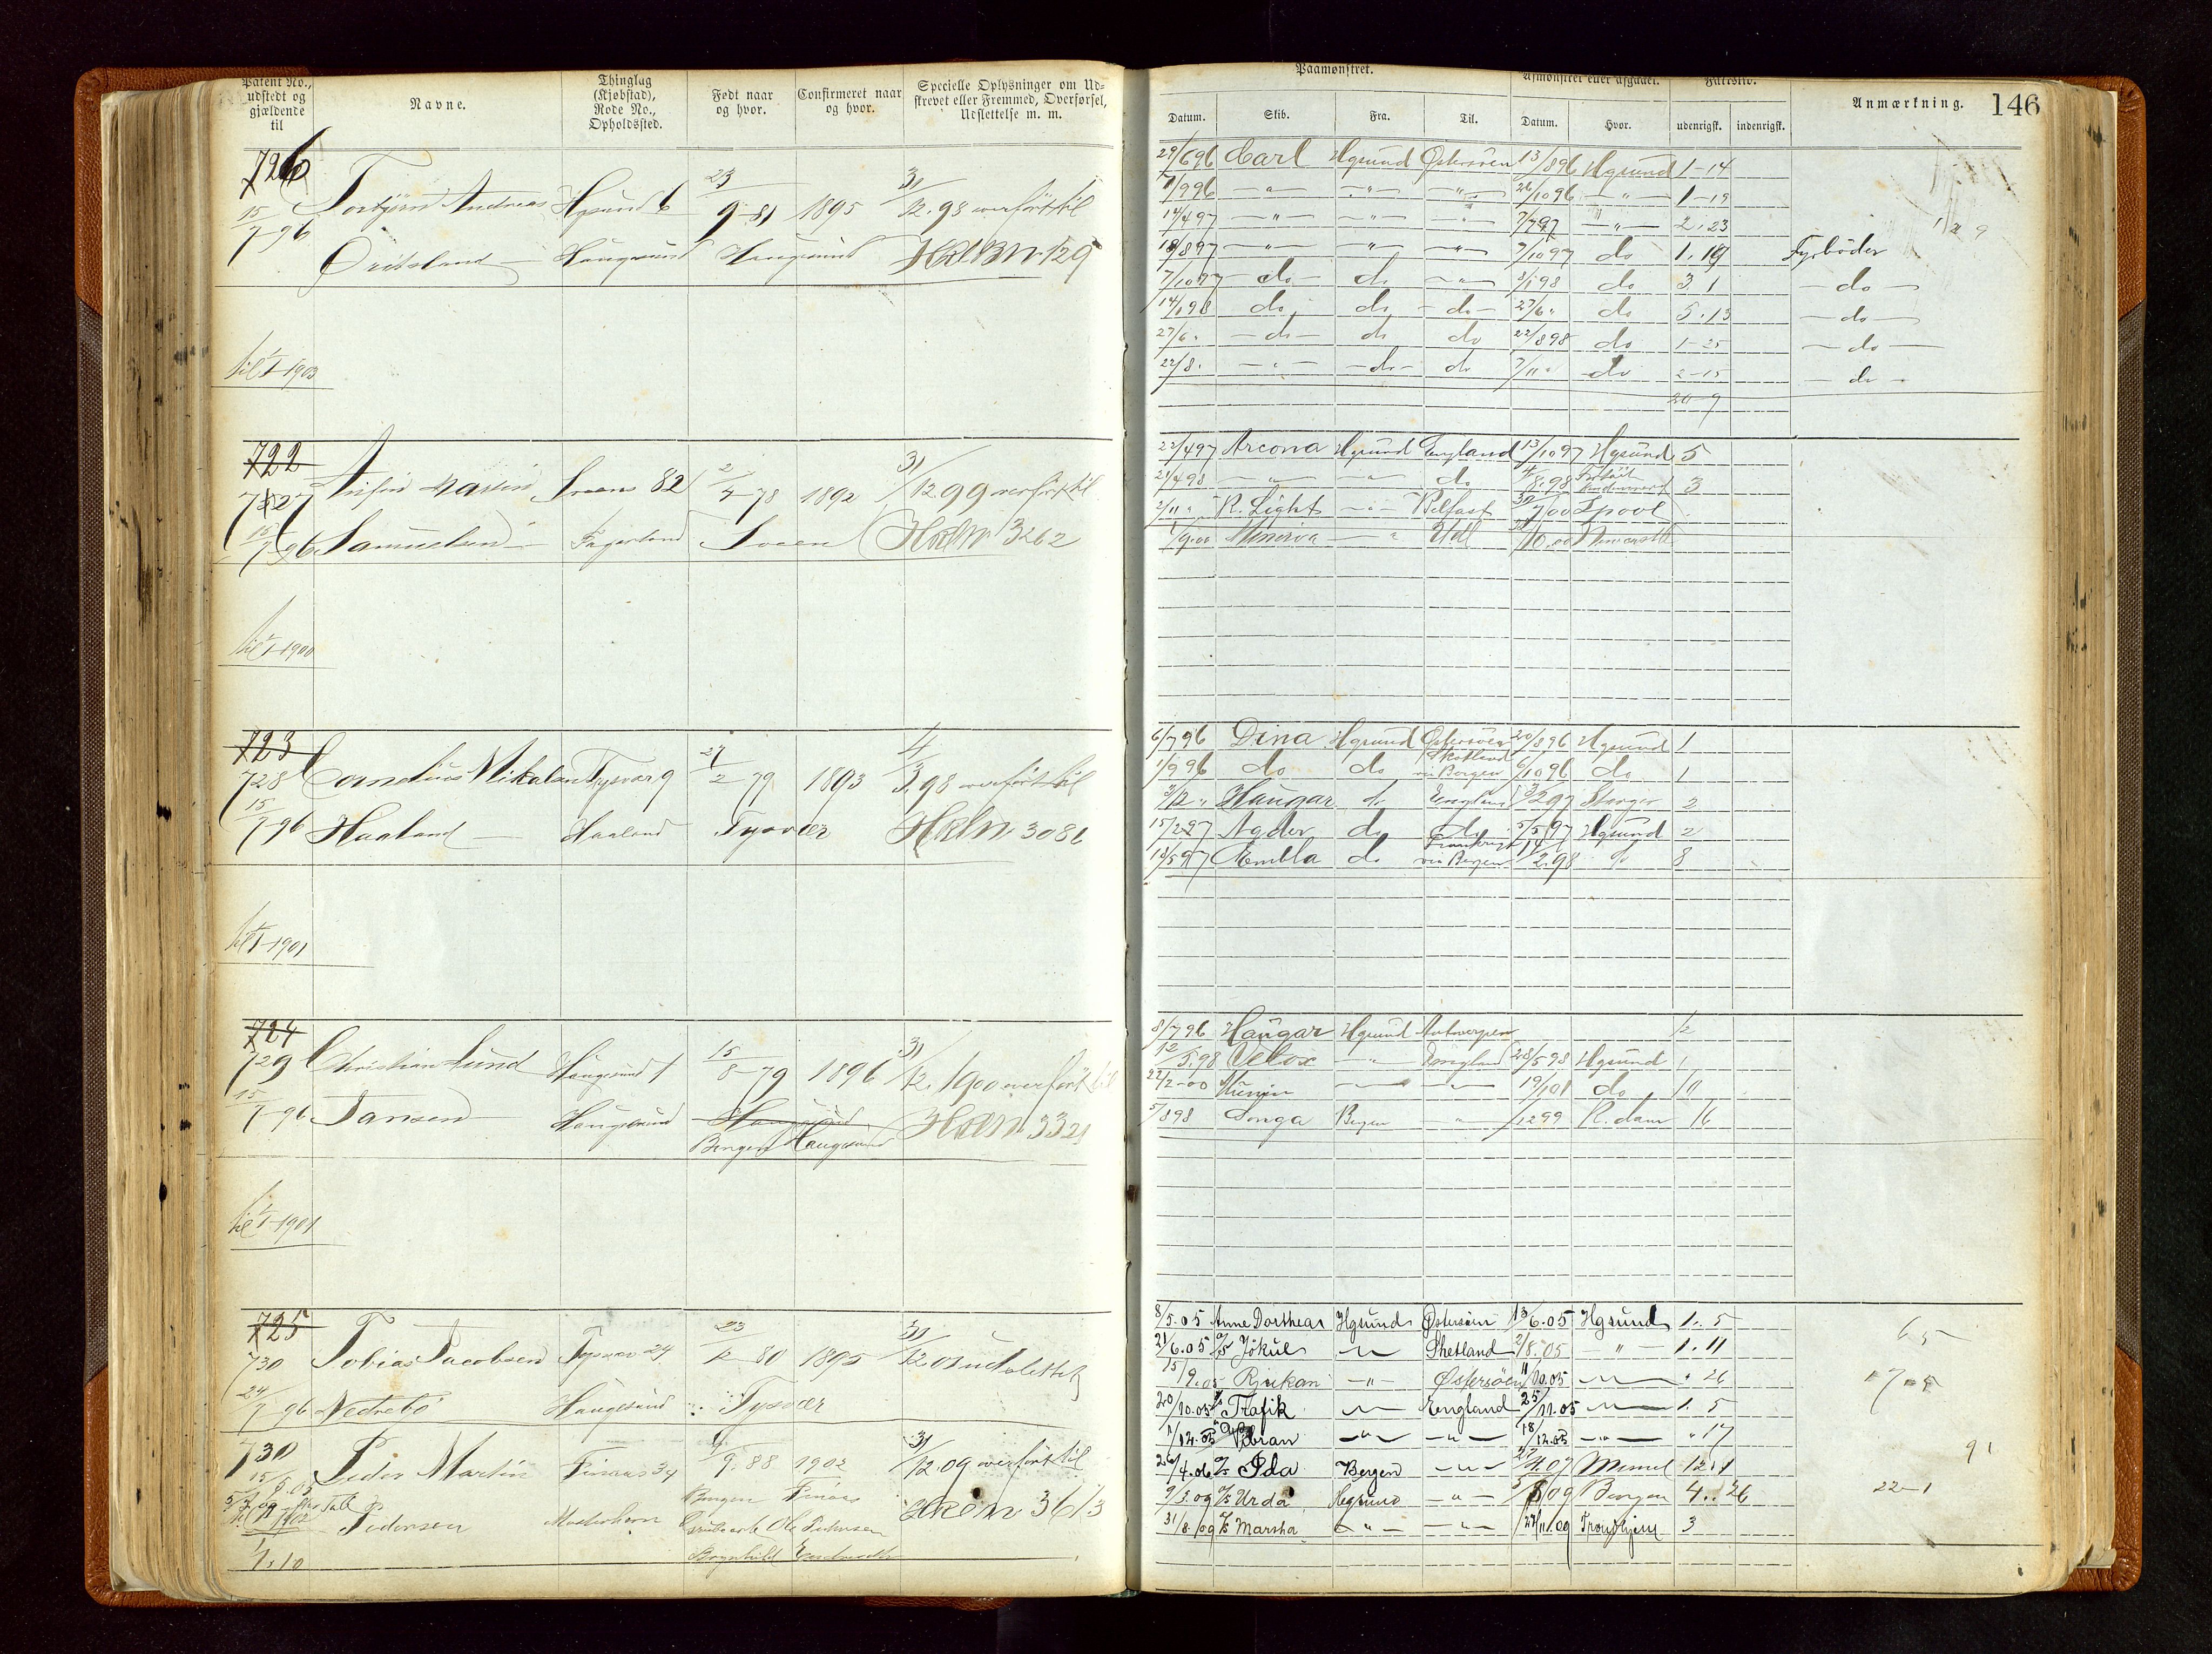 Patent No., udstedt og gjældende til
Navne.
Thinglag (Kjøbstad), Rode No., Opholdssted.
Født naar og hvor.
Confirmeret naar og hvor.
Specielle Oplysninger om Udskrevet eller Fremmed, Overførsel, Udslettelse m. m.
Paamønstret.
Afmønstret eller afgaaet.
Fartstid.
Anmærkning.
146
Datum. Skib. Fra. Til. Datum. Hvor. udenrigsk. indenrigsk.
726
15/7-96
Torbjørn Andreas
Hgsund 6
23/9-81 1895
31/12.98 overført til
Haugesund
Haugesund
til 1/1-1903
29/6 96 Carl Hgsund Østersøen 13/8 96 Hgsund 1-14
1/9 96 " " " 26/10 96 " 1-19
14/4 97 " " " 7/7 97 " 2.23
18/8 97 " " " 7/10 97 do 1.19 Fyrbøder
7/10 97 do do " 8/1 98 do 3 1 do
14/1 98 do do do 27/6 " do 5.13 do
27/6 " do do do 22/8 98 do 1-25 do
22/8 " " do do 7/11 " do 2-15 do
20-9
722
727
15/7-96
Samuelsen
Sveen 82
Fagerland
2/4-78 1892
Sveen
31/12 99 overført til
3262
til 1/1-1900
22/4 97 Arcona Hgsund England 13/10 97 Hgsund 5
21/4 98 " " do 3
2/11 " R. Light " Belfast
1/9.00 Minerva " Udl
723
728
15/7-96
Cornelius Nikolan
Haaland
Tysvær 9
Haaland
27/2-79 1893
Tysvær
4/3.98 overført til
3086
til 1/1-1901
6/7 96 Dina Hgsund Østersøen 20/8 96 Hgsund 1
1/9 96 do do Skotland via Bergen 6/10 96 do 1
3/12 " Haugar do England 2
15/2 97 Agder do do 5/5 97 Hgsund 2
18/5 97 Embla do Frankrig via Bergen 2.98 8
724
729
15/7-96
Christian Lund
Jansen
Haugesund 1
Haugesund
15/8-79 1896
Haugesund
Bergen Haugesund
31/12.1900 overført til
3321
til 1/1-1901
8/7 96 Haugar Hgsund Antwerpen 1/2
12/5.98 Velox " England 28/5 98 Hgsund 1
22/2-00 Munin " " 19/1 01 do 11
5/8 98 Songa Bergen " /12 99 R.dam 16
725
730
24/7-96
Tobias Jacobsen
Nedrebö
Tysvær 24
Haugesund
23/12 80 1895
Tysvær
31/12 03 udslettet
8/5.05 Anne Dorthea Hgsund Østersøen 13/6.05 Hgsund 1. 5
21/6.05 Jökul " Shetland 2/8.05 " 1.11
15/9.05 Rjukan " Østersøen 11/10.05 " 26
20/10.05 Trafik " England 25/11.05 " 1. 5
1/12.05 " " 18/12.05 " 17
26/4.06 Ida Bergen " Memel 12.1
9/3.09 Urda Hgsund " Bergen 4.. 26
31/8.09 Marsha " " 22/11.09 Trondhjem 3
65
91
22-1
730
Peder Martin
Pedersen
Finaas 34
Mosterhavn
9.88 1902
Bergen Finaas
31/12.09 overført til
3613
1/1.10